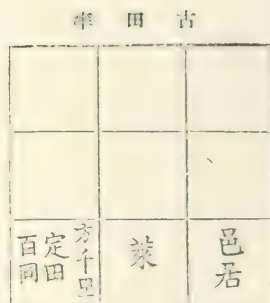 古田率
邑居
萊
方千里
定田
百同